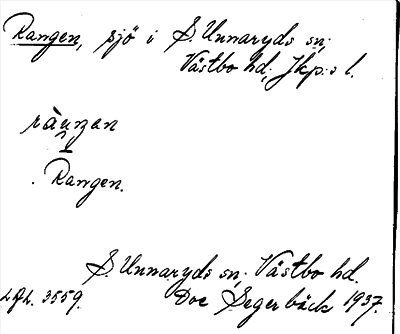 Rangen, sjö i S. Unnaryds sn;
Västbo hd; Jkp:s l.
ràuŋan
. Rangen.
S. Unnaryds sn; Västbo hd.
LGL. 3559. Doc Segerbäck 1937.